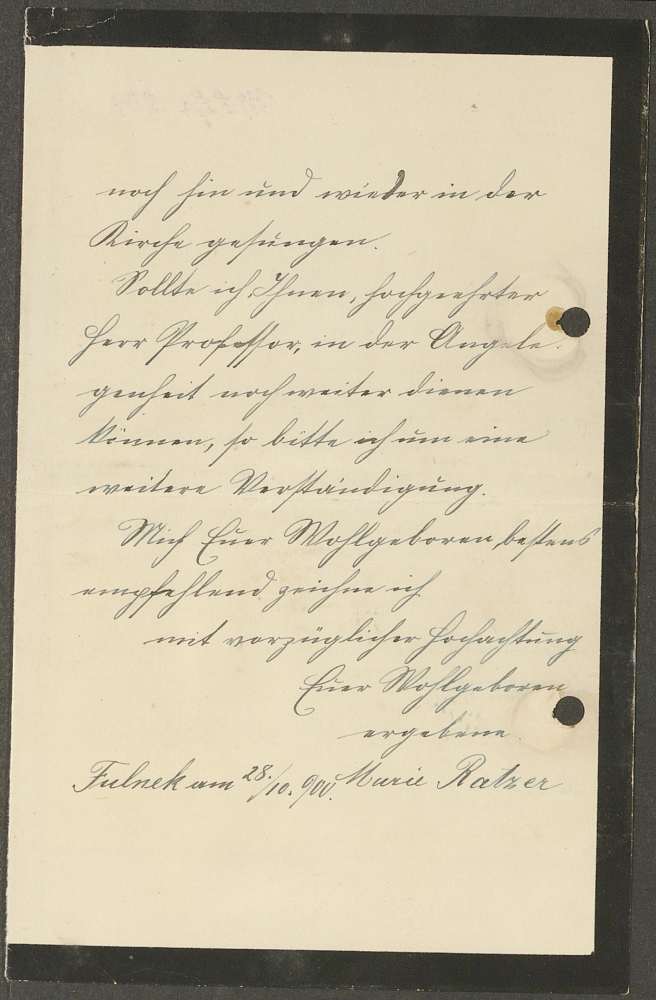 noch hin und wieder in der
Kirche gesungen.
Sollte ich Ihnen, hochgeehrter
Herr Professor, in der Angele-
genheit noch weiter dienen
können, so bitte ich um eine
weitere Verständigung.
Mich Euer Wohlgeboren bestens
empfehlend zeichne ich
mit vorzüglicher Hochachtung
Euer Wohlgeboren
ergebene
Fulnek am 28./10. 900. Marie Ratzer